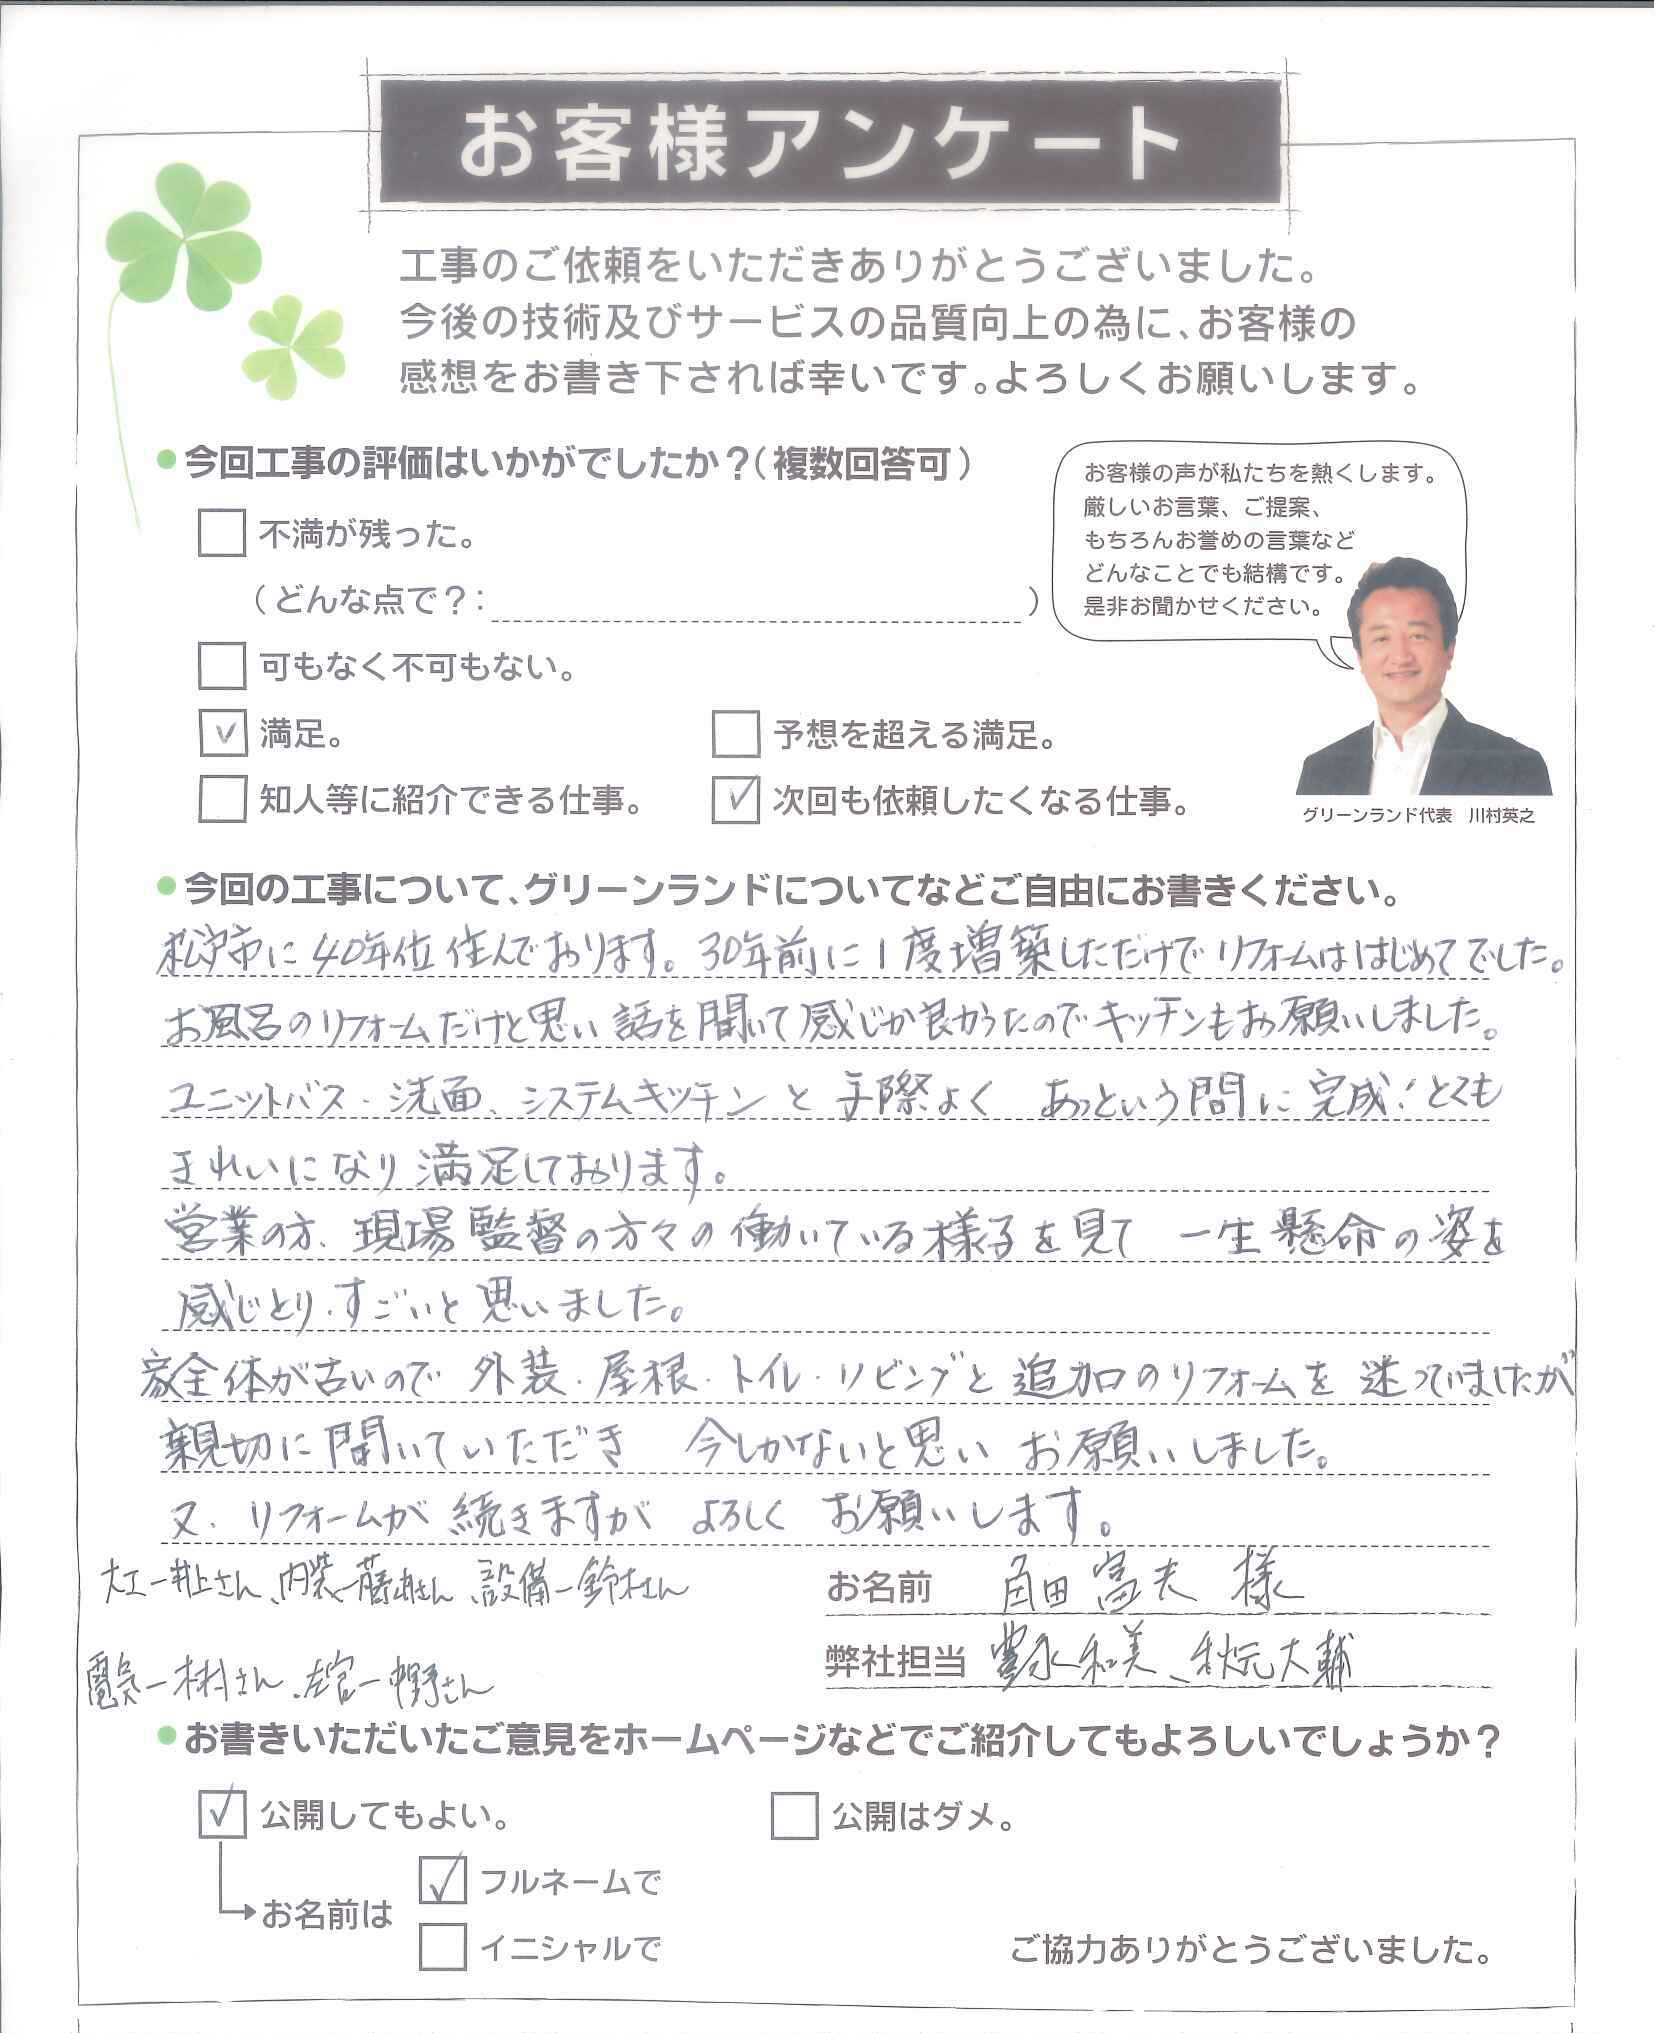 お客様アンケート
工事のご依頼をいただきありがとうございました。
今後の技術及びサービスの品質向上の為に、お客様の
感想をお書き下されば幸いです。よろしくお願いします。
今回工事の評価はいかがでしたか？（複数回答可）
不満が残った。
（どんな点で？： ）
可もなく不可もない。
満足。
予想を超える満足。
知人等に紹介できる仕事。
次回も依頼したくなる仕事。
お客様の声が私たちを熱くします。
厳しいお言葉、ご提案、
もちろんお誉めの言葉など
どんなことでも結構です。
是非お聞かせください。
グリーンランド代表　川村英之
今回の工事について、グリーンランドについてなどご自由にお書きください。
松戸市に40年位住んでおります。30年前に1度増築しただけでリフォームははじめてでした。
お風呂のリフォームだけと思い話を聞いて感じが良かったのでキッチンもお願いしました。
ユニットバス・洗面、システムキッチンと手際よく あっという間に完成！とても
きれいになり満足しております。
営業の方、現場監督の方々の働いている様子を見て 一生懸命の姿を
感じとり、すごいと思いました。
家全体が古いので 外装・屋根・トイレ・リビングと追加のリフォームを迷っていましたが
親切に聞いていただき 今しかないと思い お願いしました。
又、リフォームが続きますが よろしくお願いします。
大工ー井上さん、内装ー藤崎さん、設備ー鈴木さん
電気ー木村さん、左官ー中野さん
お名前 角田富夫 様
弊社担当 豊永和美、秋元大輔
お書きいただいたご意見をホームページなどでご紹介してもよろしいでしょうか？
公開してもよい。
公開はダメ。
お名前は
フルネームで
イニシャルで
ご協力ありがとうございました。